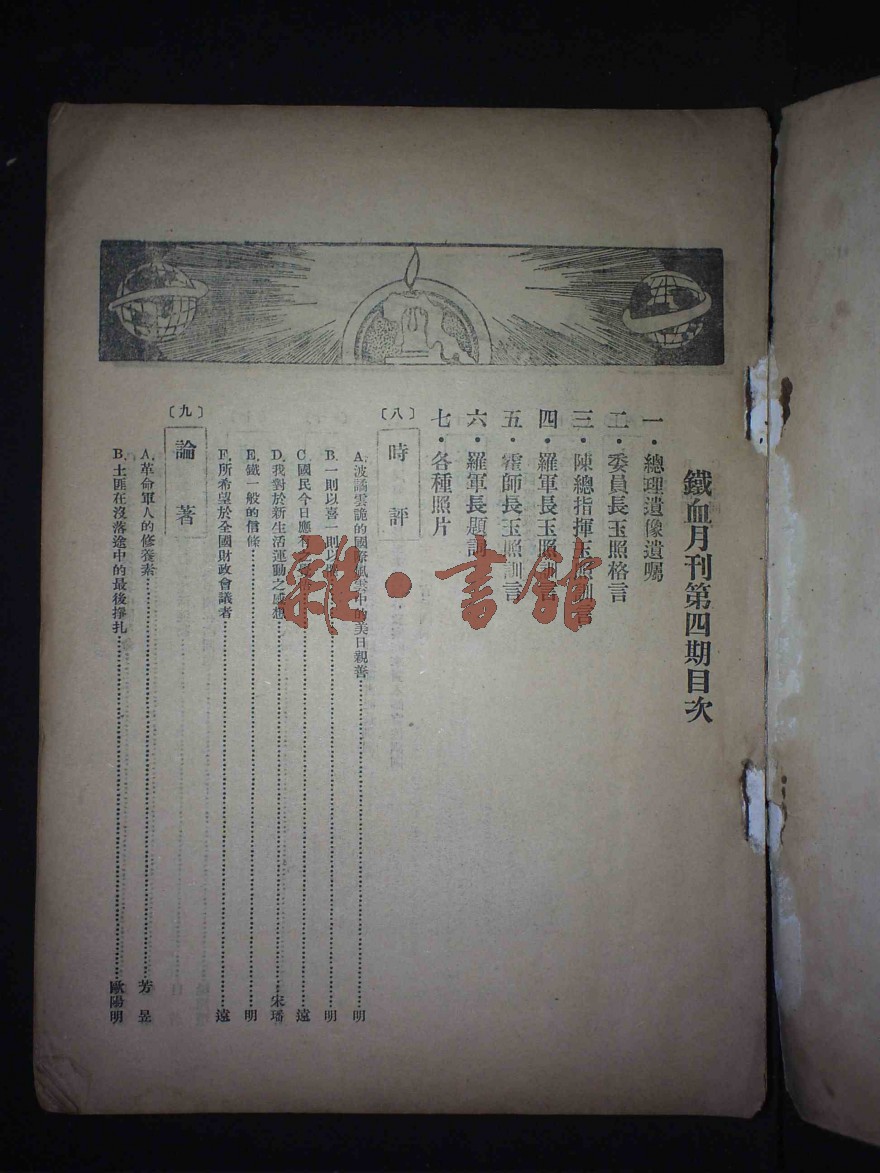 鐵血月刊第四期目次
一・總理遺像遺囑
二・委員長玉照格言
三・陳總指揮玉照訓言
四・羅軍長玉照訓言
五・霍師長玉照訓言
六・羅軍長題詞
七・各種照片
〔八〕時評
A.波譎雲詭的國際風雲中的美日親善……明
B.一則以喜一則以……明
C.國民今日應有……遠
D.我對於新生活運動之感想……宋璠
E.鐵一般的信條……明
F.所希望於全國財政會議者……遠
〔九〕論著
A.革命軍人的修養素……芳昱
B.土匪在沒落途中的最後掙扎……歐陽明
雜・書館